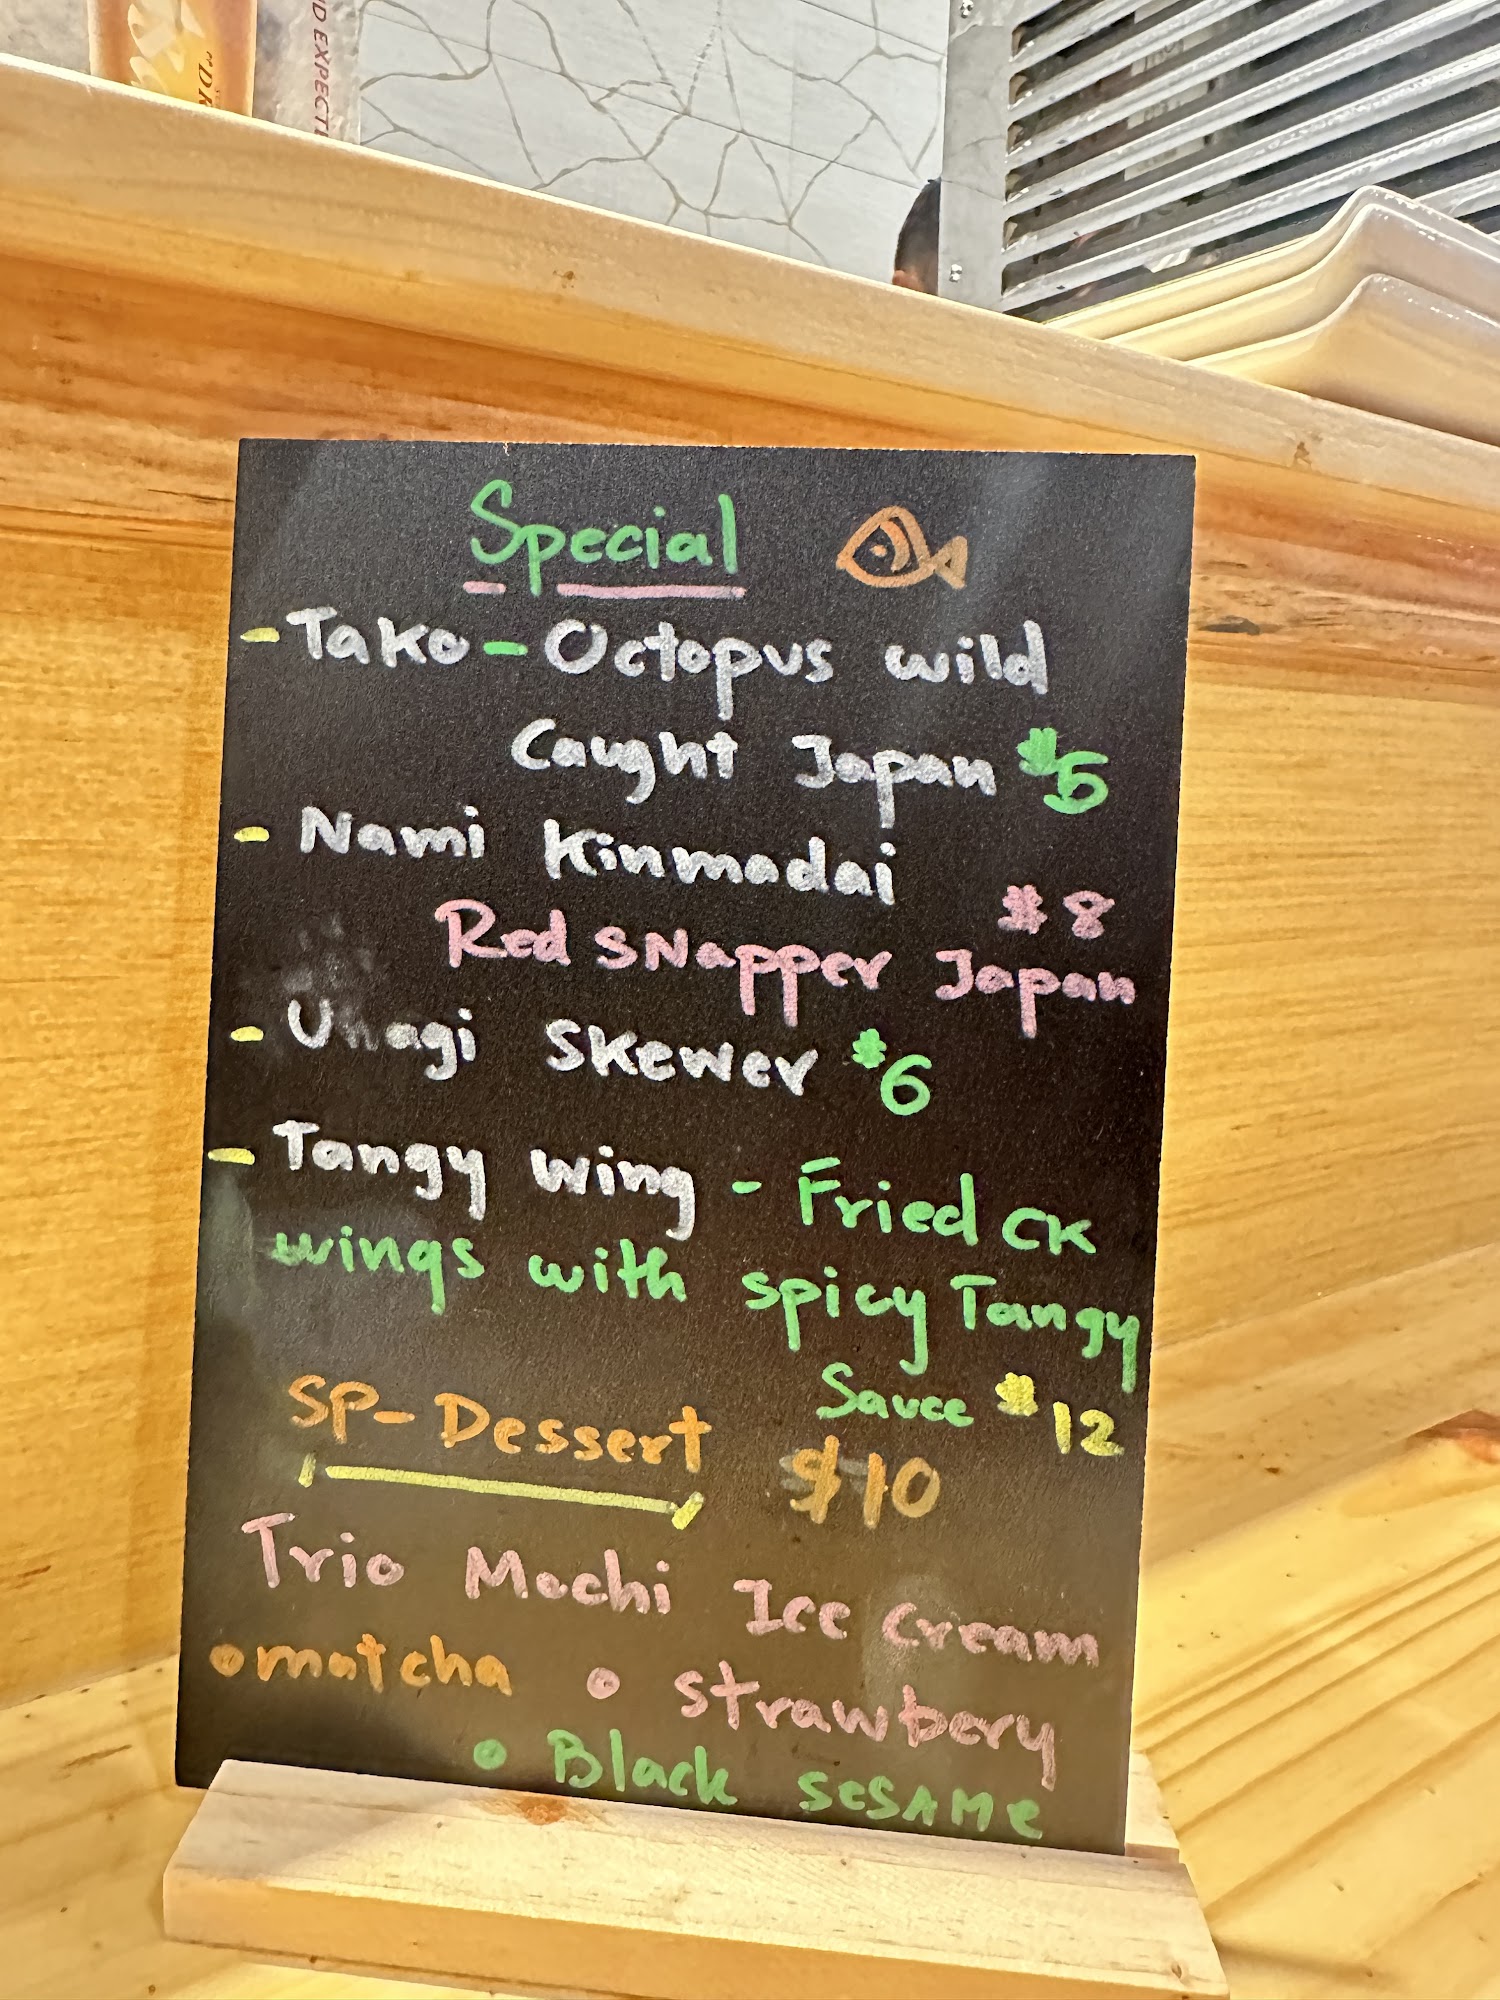 "DR
ND EXPECT
Special
- Tako - Octopus wild
Caught Japan $5
- Nami Kinmadai
$8
Red SNapper Japan
- Unagi Skewer $6
- Tangy wing - Fried CK
wings with spicy Tangy
Sauce $12
SP-Dessert $10
Trio Mochi Ice Cream
• matcha • strawbery
• Black SESAME